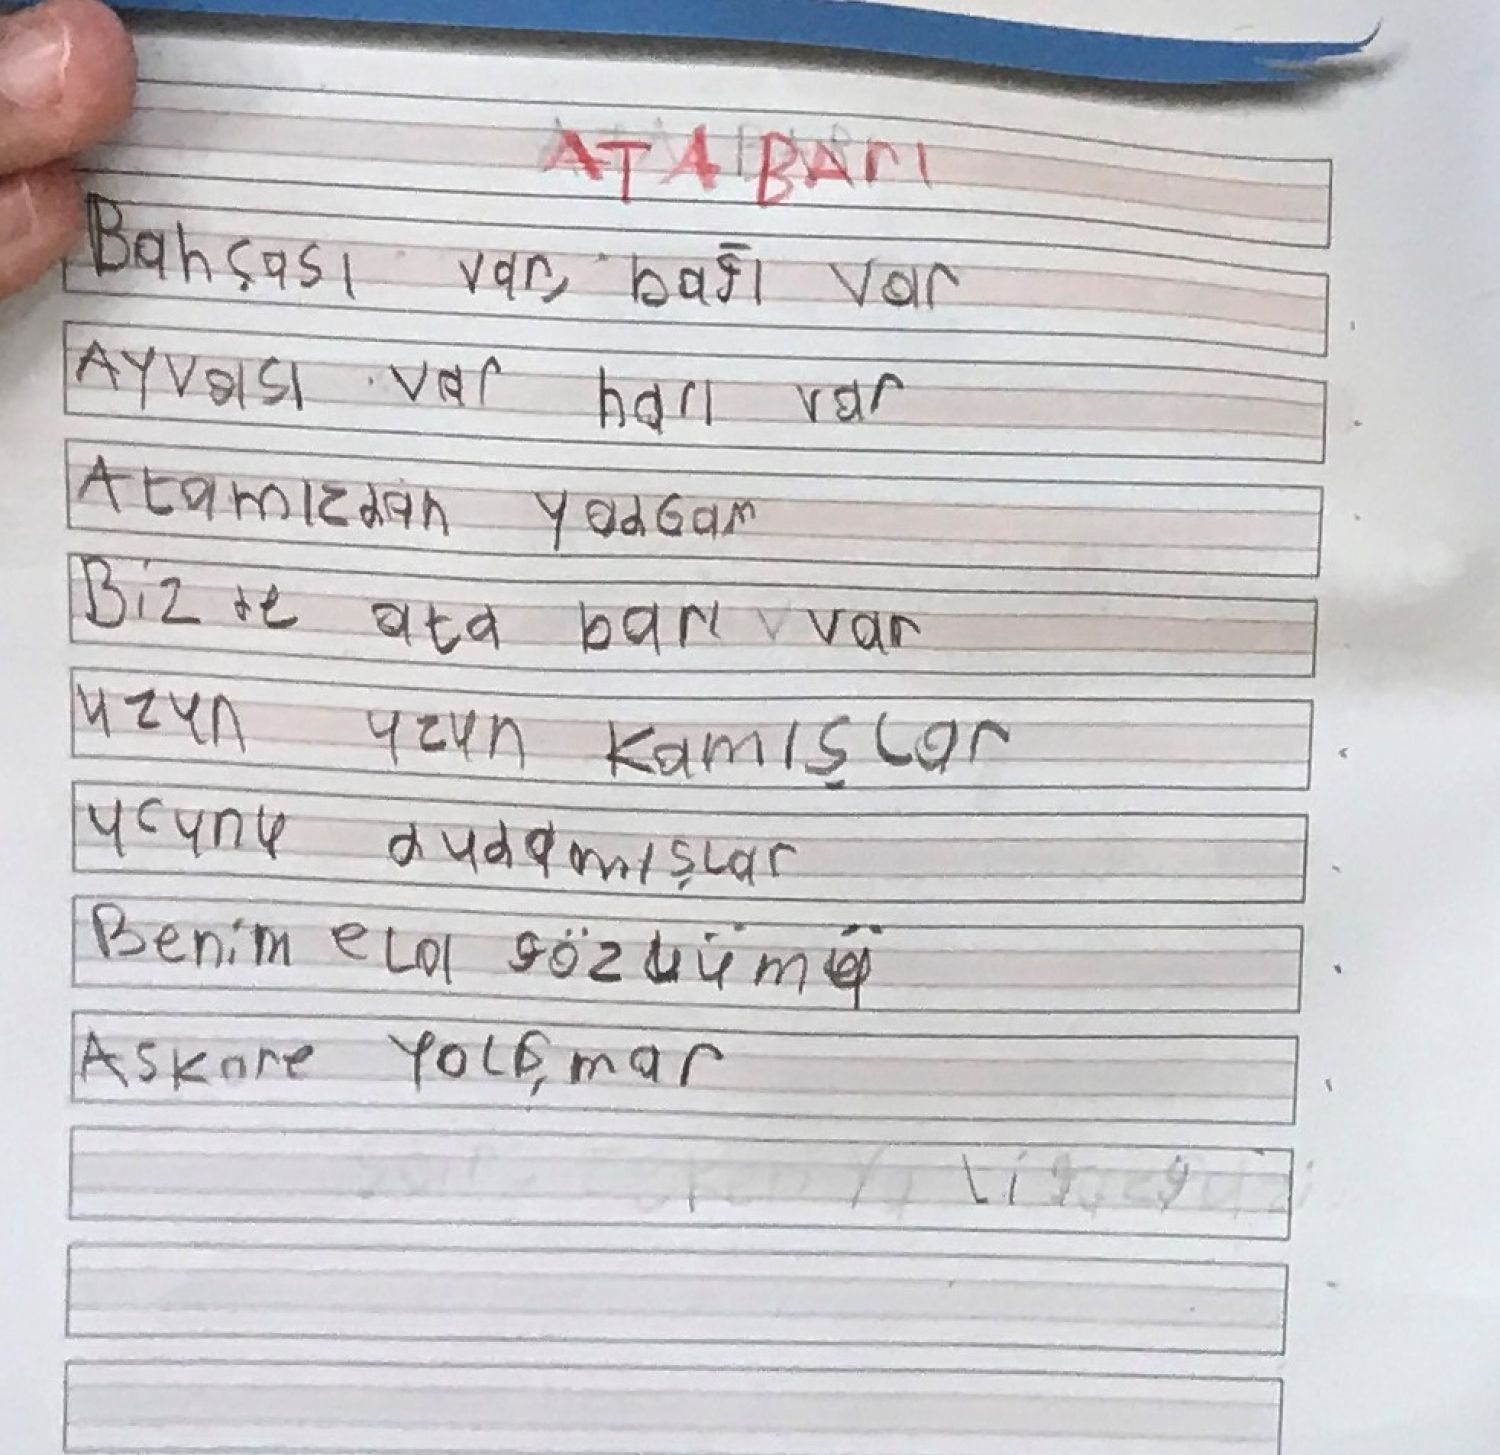 ATA BARI
Bahçası var, bağı var
Ayvası var harı var
Atamızdan yadGam
Bizde ata barı var
uzun uzun kamışlar
ucunu dudamışlar
Benim ela gözlüümü
Askare yolmar